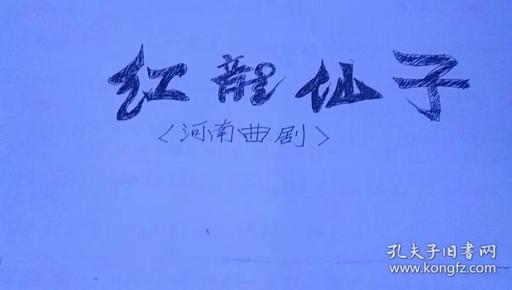 红龍仙子
<河南曲剧>
孔夫子旧书网
www.kongfz.com